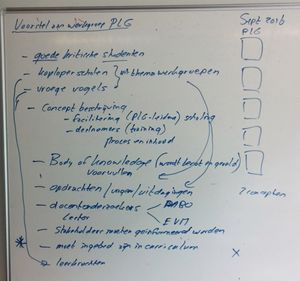 Voorstel van werkgroep PLG
Sept 2016
PLG
- goede kritische studenten
- koploperscholen } uit themawerkgroepen
- vroege vogels
- Concept beschrijving
- facilitering (PLG-leiden) scholing
- deelnemers (training)
proces en inhoud
- Body of knowledge (wordt
voorvullen
- opdrachten / vragen / uitdagingen
2 concepten
- docentonderzoekers
lector
EVM
- Stakeholders moeten geïnformeerd worden
- moet ingebed zijn in curriculum
x